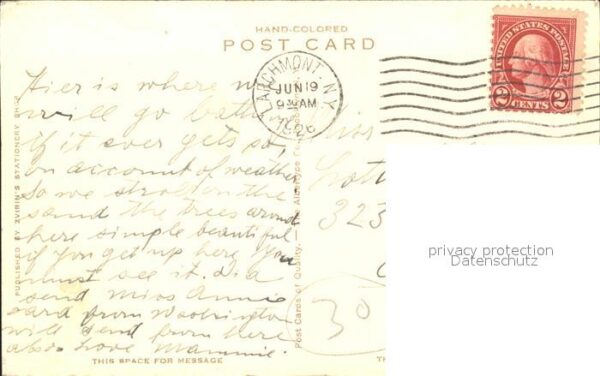 HAND-COLORED
POST CARD
LARCHMONT, N.Y.
JUN 19
9 30 AM
1926
UNITED STATES POSTAGE
2 CENTS 2
Hier is where we
will go bathing
if it ever gets so,
on account of weather
so we stroll on the
sand the trees around
here simple beautiful
if you get up here you
must see it. did
send Miss Annie
card from Washington
will send from here
also. Love Mammie.
Miss
Lott
323
30
PUBLISHED BY ZVIRIN'S STATIONERY SHOP
Post Cards of Quality. — The Albertype
THIS SPACE FOR MESSAGE
TH
privacy protection
Datenschutz